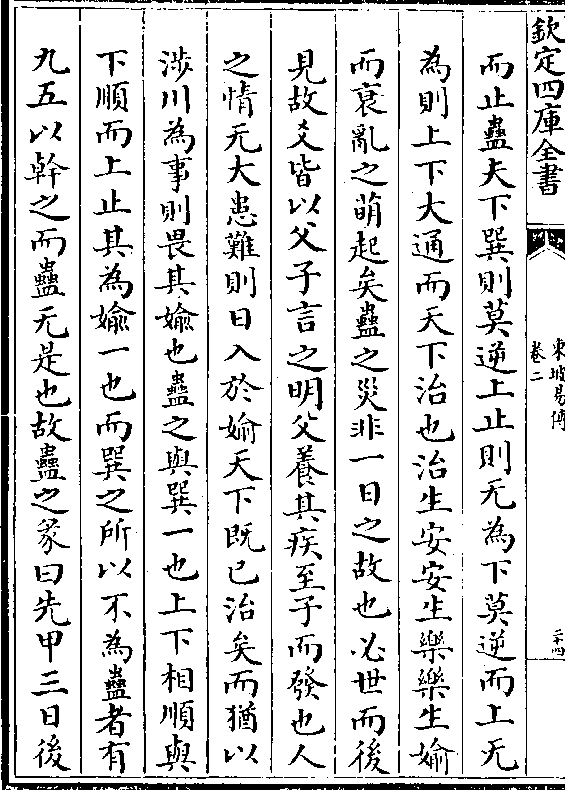 欽定四庫全書
東坡易傳
卷二
二十四
而止蠱夫下巽則莫逆上止則无為下莫逆而上无
為則上下大通而天下治也治生安安生樂樂生媮
而衰亂之萌起矣蠱之災非一日之故也必世而後
見故爻皆以父子言之明父養其疾至子而發也人
之情无大患難則日入於媮天下既已治矣而猶以
涉川為事則畏其媮也蠱之與巽一也上下相順與
下順而上止其為媮一也而巽之所以不為蠱者有
九五以幹之而蠱无是也故蠱之彖曰先甲三日後